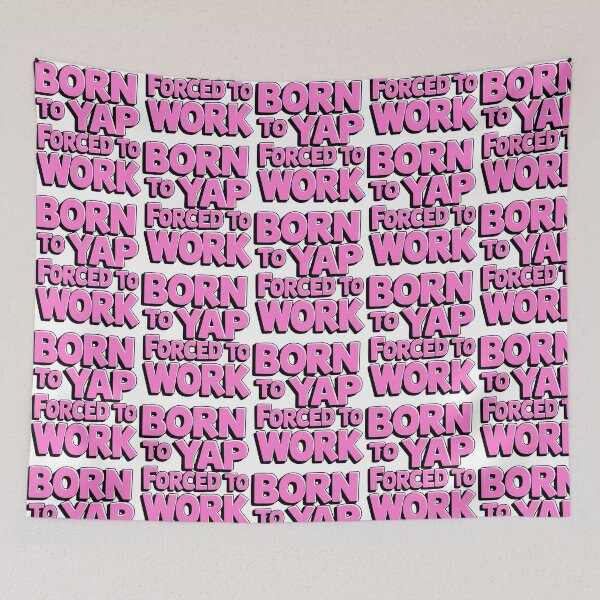 BORN
TO YAP
FORCED TO
WORK
BORN
TO YAP
FORCED TO
WORK
BORN
TO YAP
FORCED TO
WORK
BORN
TO YAP
FORCED TO
WORK
BORN
TO YAP
FORCED TO
WORK
BORN
TO YAP
FORCED TO
WORK
BORN
TO YAP
FORCED TO
WORK
BORN
TO YAP
FORCED TO
WORK
BORN
TO YAP
FORCED TO
WORK
BORN
TO YAP
FORCED TO
WORK
BORN
TO YAP
FORCED TO
WORK
BORN
TO YAP
FORCED TO
WORK
BORN
TO YAP
FORCED TO
WORK
BORN
TO YAP
FORCED TO
WORK
BORN
TO YAP
FORCED TO
WORK
BORN
TO YAP
FORCED TO
WORK
BORN
TO YAP
FORCED TO
WORK
BORN
TO YAP